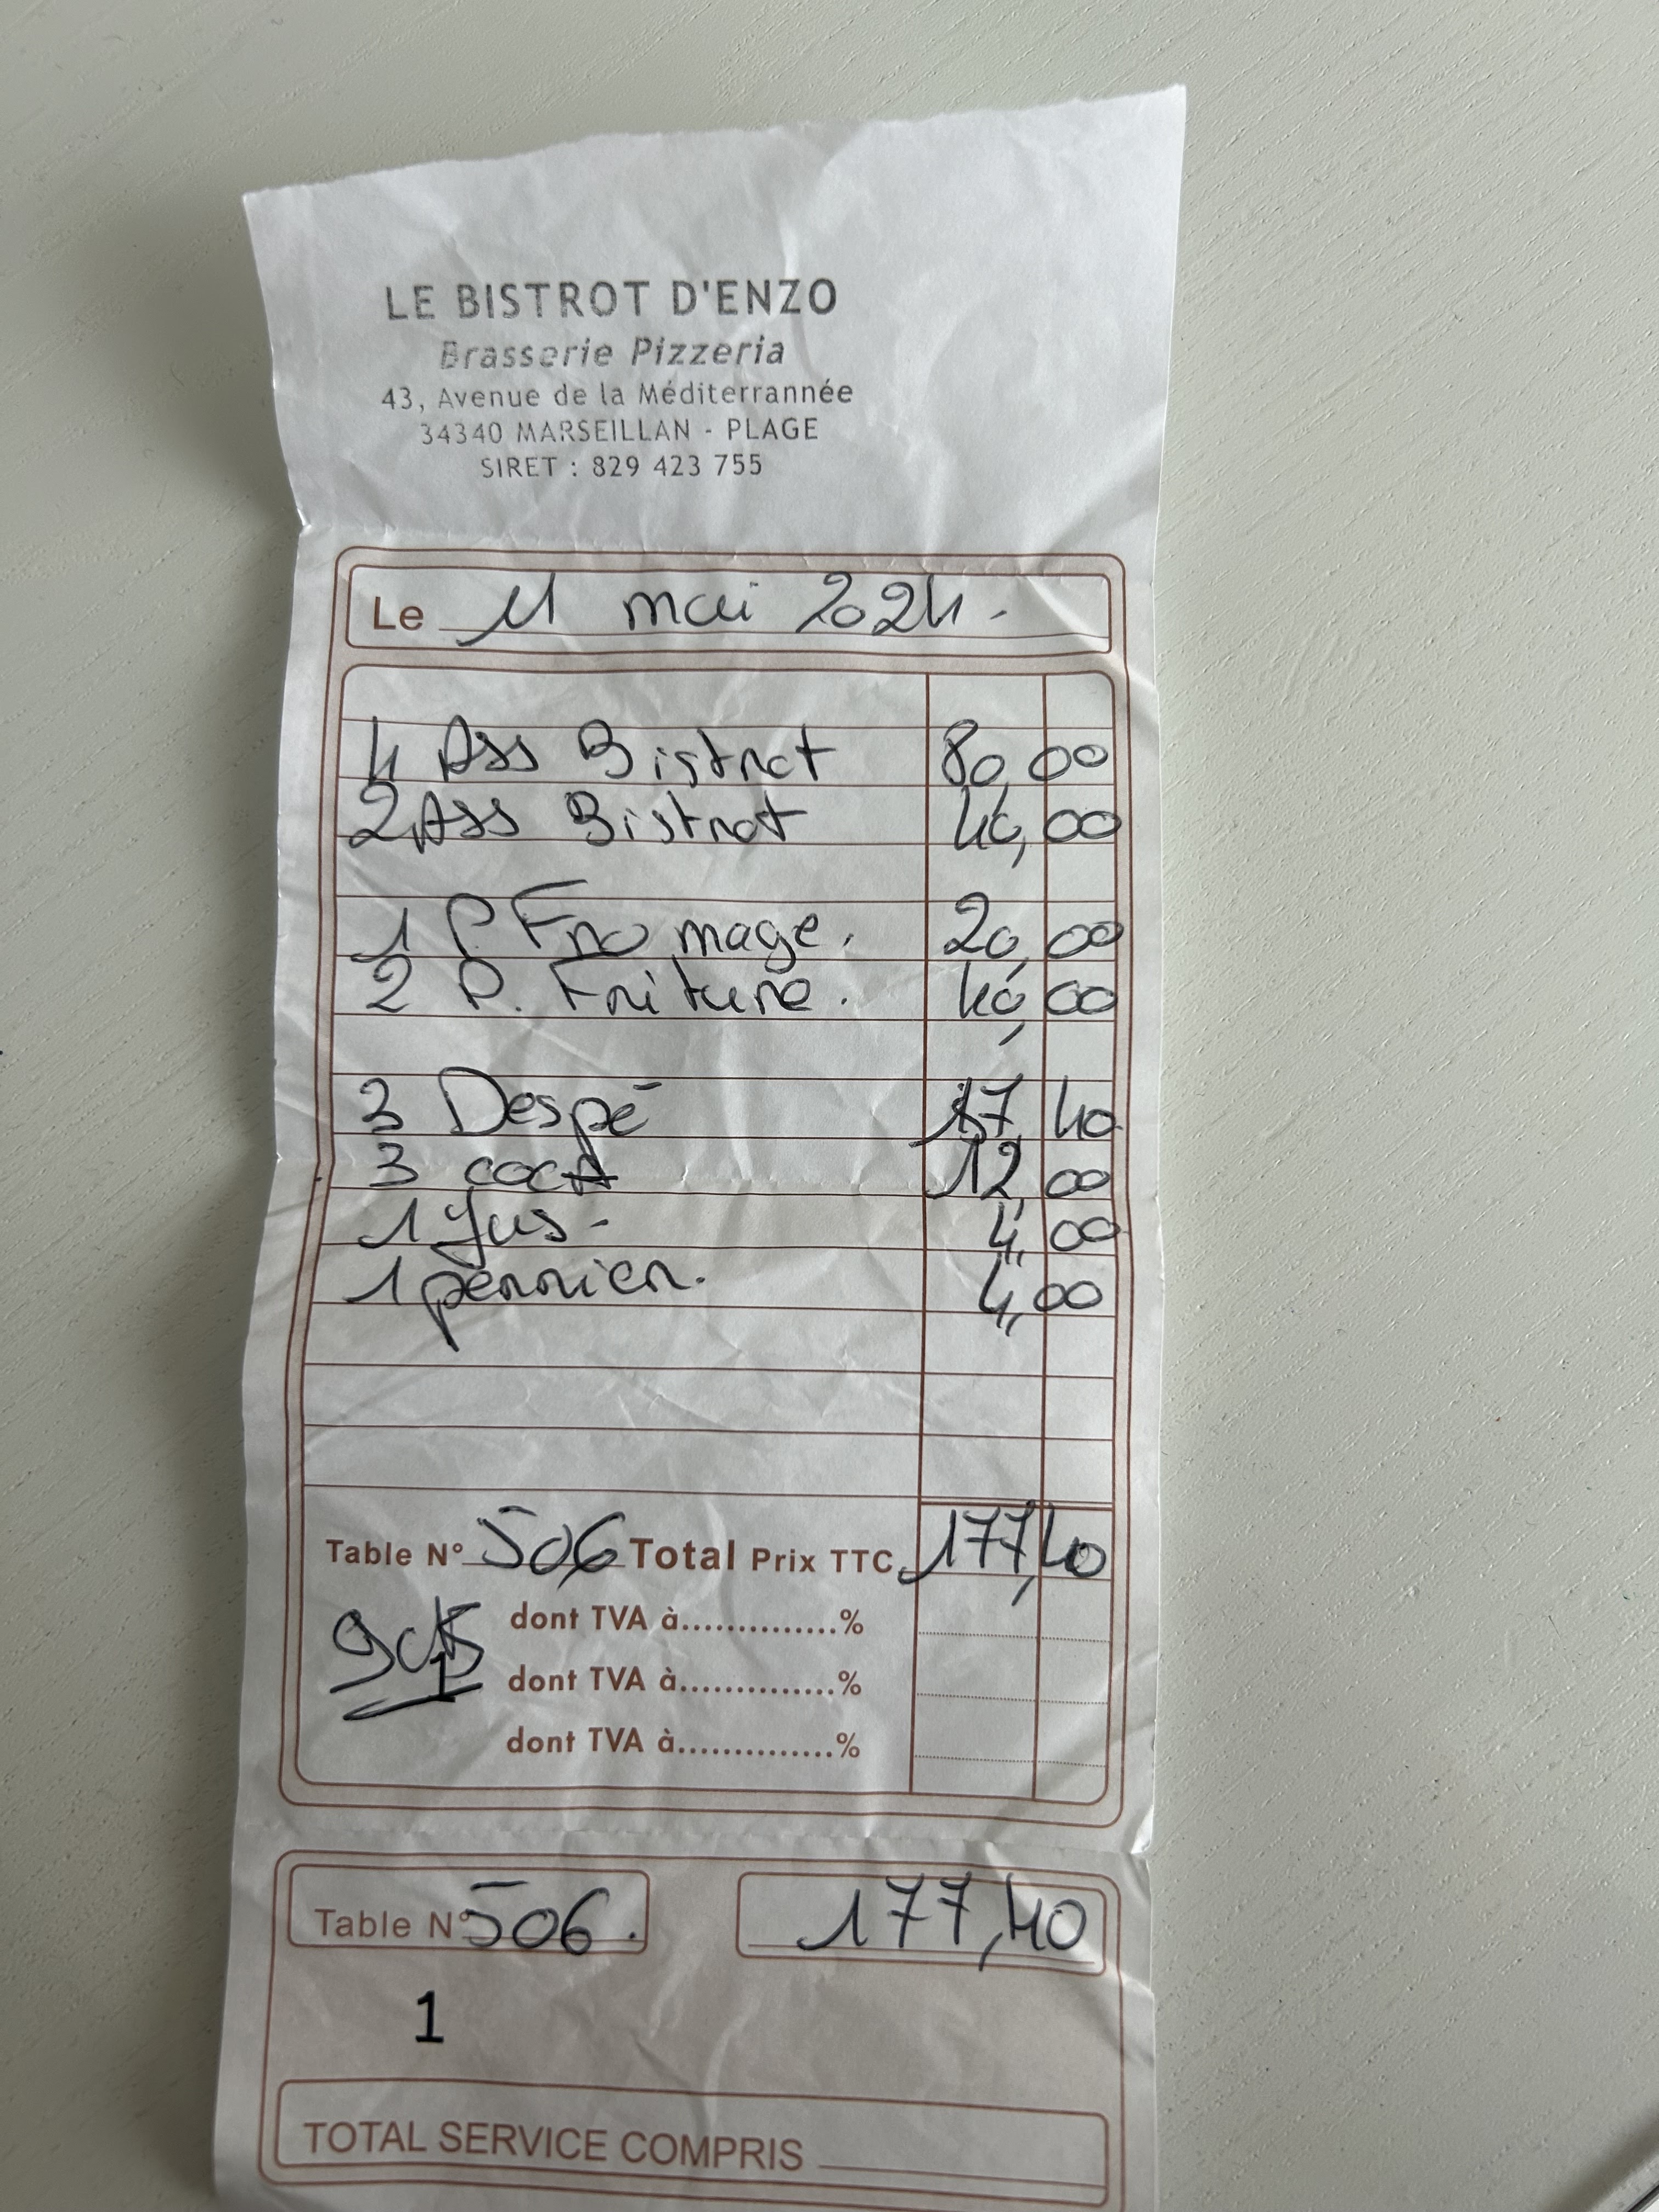 LE BISTROT D'ENZO
Brasserie Pizzeria
43, Avenue de la Méditerrannée
34340 MARSEILLAN - PLAGE
SIRET : 829 423 755
Le 11 mai 2024.
4 Ass Bistrot 80,00
2 Ass Bistrot 40,00
1 P. Fromage. 20,00
2 P. Friture. 40,00
3 Despé 17,40
3 coca 12,00
1 Jus - 4,00
1 perrier. 4,00
Table N° 506 Total Prix TTC 177,40
dont TVA à..............%
1 dont TVA à..............%
dont TVA à..............%
Table N° 506. 177,40
1
TOTAL SERVICE COMPRIS